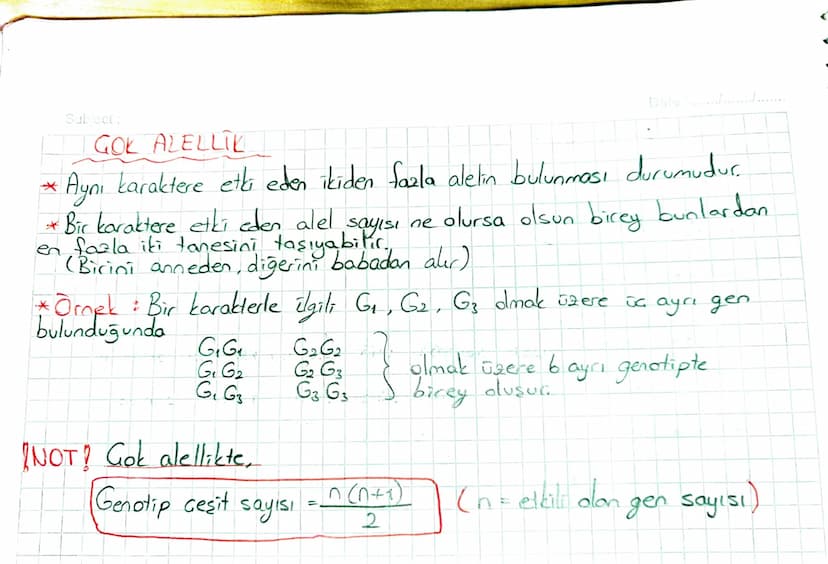 Subject:
Date : ......./......./.......
ÇOK ALELLİK
* Aynı karaktere etki eden ikiden fazla alelin bulunması durumudur.
* Bir karaktere etki eden alel sayısı ne olursa olsun birey bunlardan
en fazla iki tanesini taşıyabilir.
(Birini anneden, diğerini babadan alır)
* Örnek : Bir karakterle ilgili G1, G2, G3 olmak üzere üç ayrı gen
bulunduğunda
G1G1 G2G2
G1G2 G2G3 } olmak üzere 6 ayrı genotipte
G1G3 G3G3 birey oluşur.
!NOT! Çok alellikte,
Genotip çeşit sayısı = n(n+1)/2 (n = etkili olan gen sayısı)